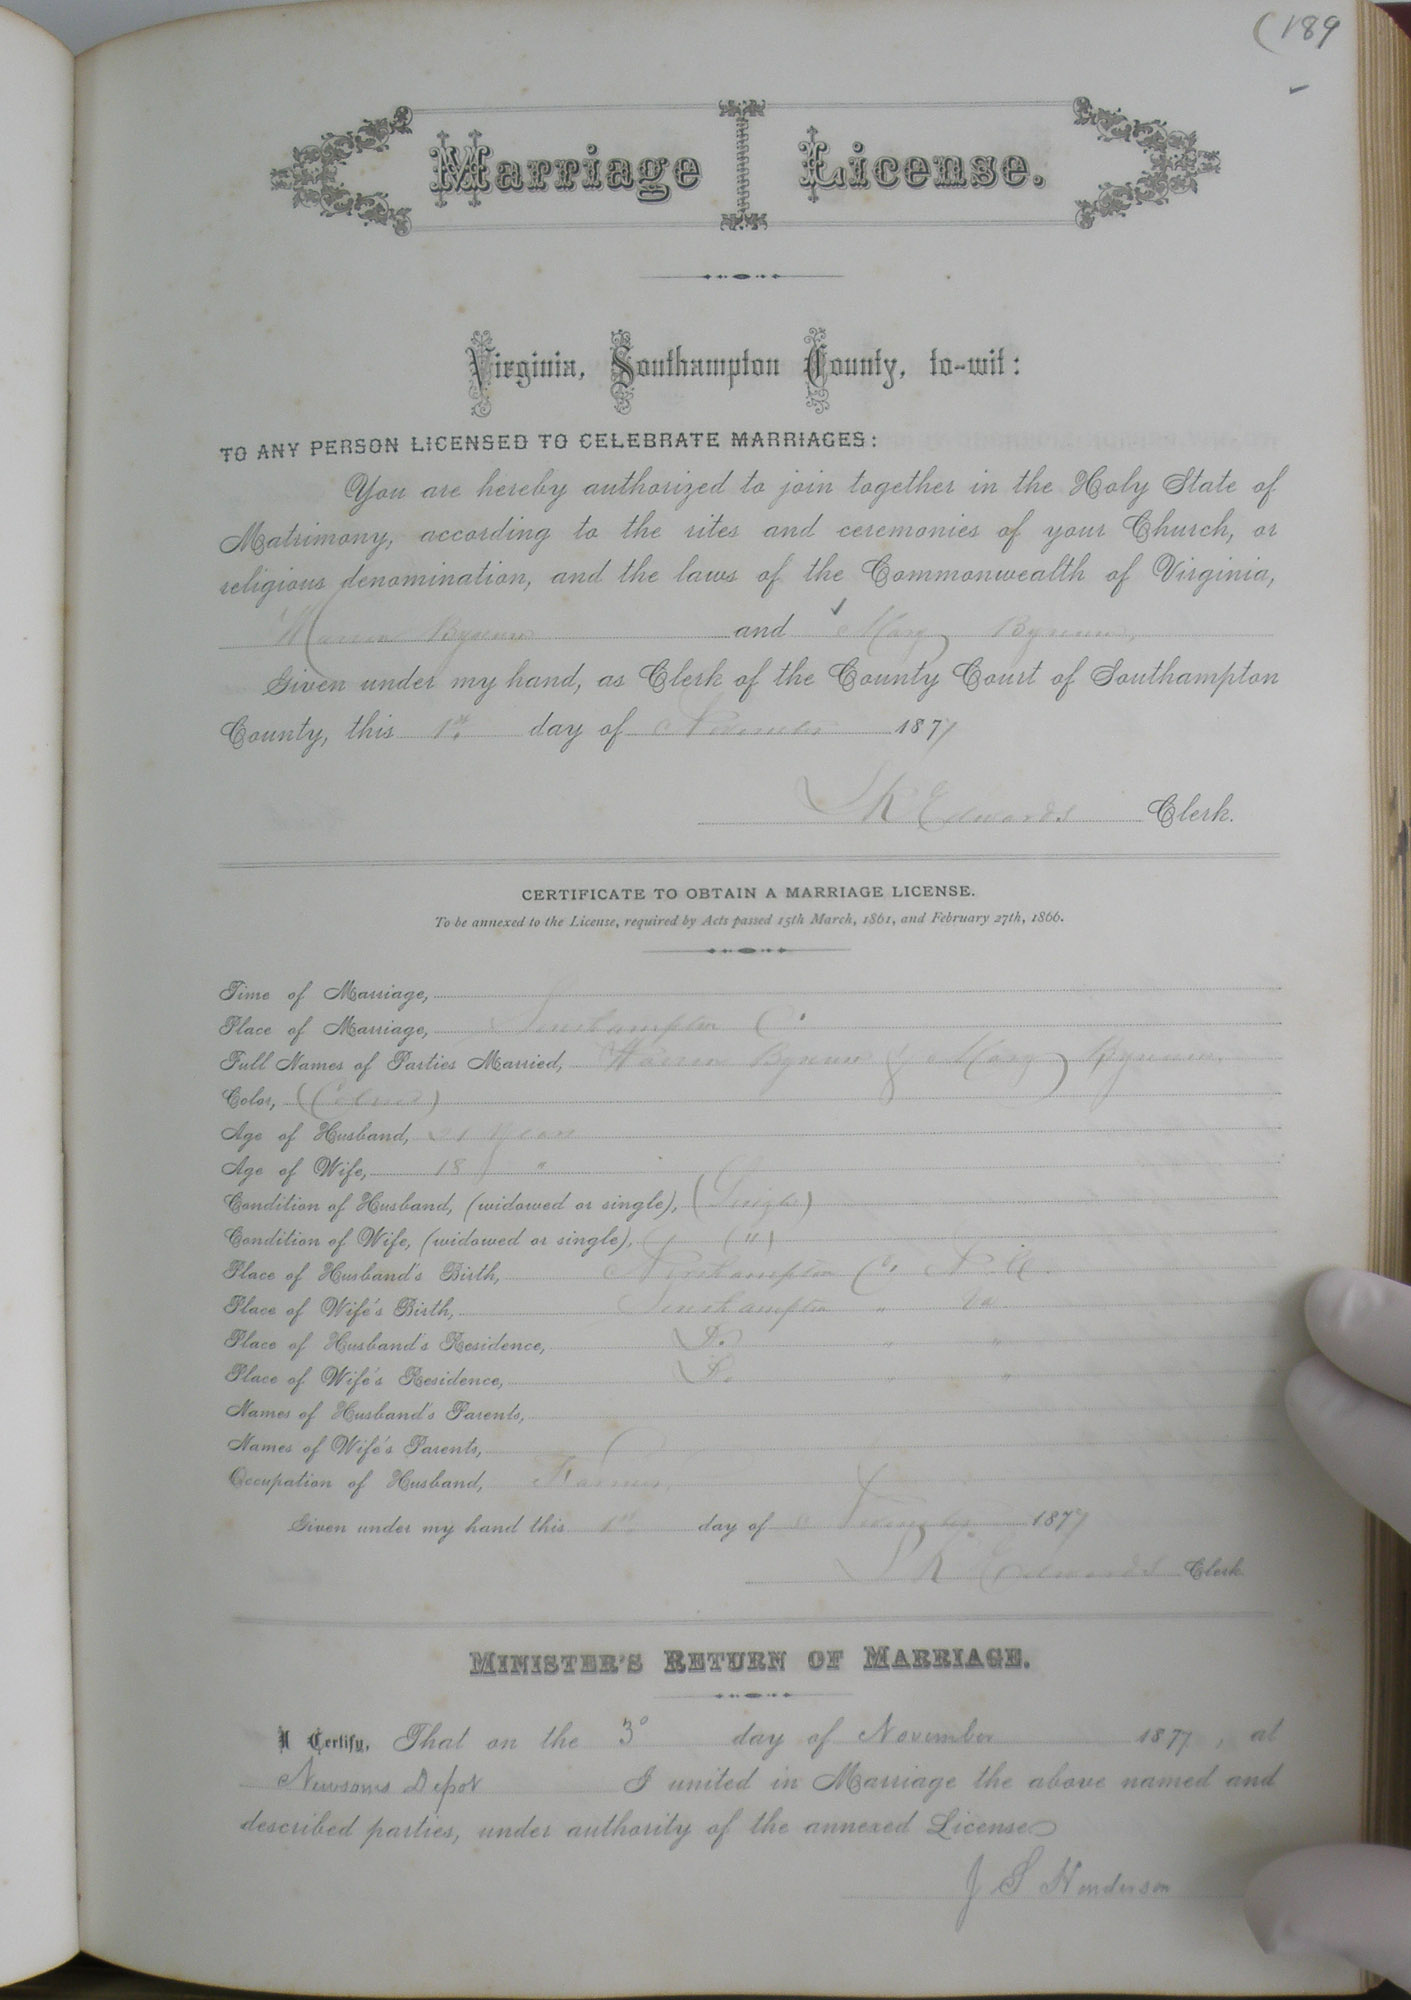 189
Marriage License.
Virginia, Southampton County, to-wit:
TO ANY PERSON LICENSED TO CELEBRATE MARRIAGES:
You are hereby authorized to join together in the Holy State of
Matrimony, according to the rites and ceremonies of your Church, or
religious denomination, and the laws of the Commonwealth of Virginia,
Bynum and Mary Bynum,
Given under my hand, as Clerk of the County Court of Southampton
County, this 1st. day of November 1877
Edwards Clerk.
CERTIFICATE TO OBTAIN A MARRIAGE LICENSE.
To be annexed to the License, required by Acts passed 15th March, 1861, and February 27th, 1866.
Time of Marriage,
Place of Marriage, Southampton Co.
Full Names of Parties Married, Bynum & Mary Bynum.
Color, (Colored)
Age of Husband, 21 years
Age of Wife, 18 "
Condition of Husband, (widowed or single), (Single)
Condition of Wife, (widowed or single), (")
Place of Husband's Birth, Northampton Co. N.C.
Place of Wife's Birth, Southampton " Va
Place of Husband's Residence, Do. " "
Place of Wife's Residence, Do. " "
Names of Husband's Parents,
Names of Wife's Parents,
Occupation of Husband, Farmer,
Given under my hand this 1st. day of November 1877
Edwards Clerk
MINISTER'S RETURN OF MARRIAGE.
I Certify, That on the 3d day of November 1877, at
Newsoms Depot I united in Marriage the above named and
described parties, under authority of the annexed License
J S Henderson